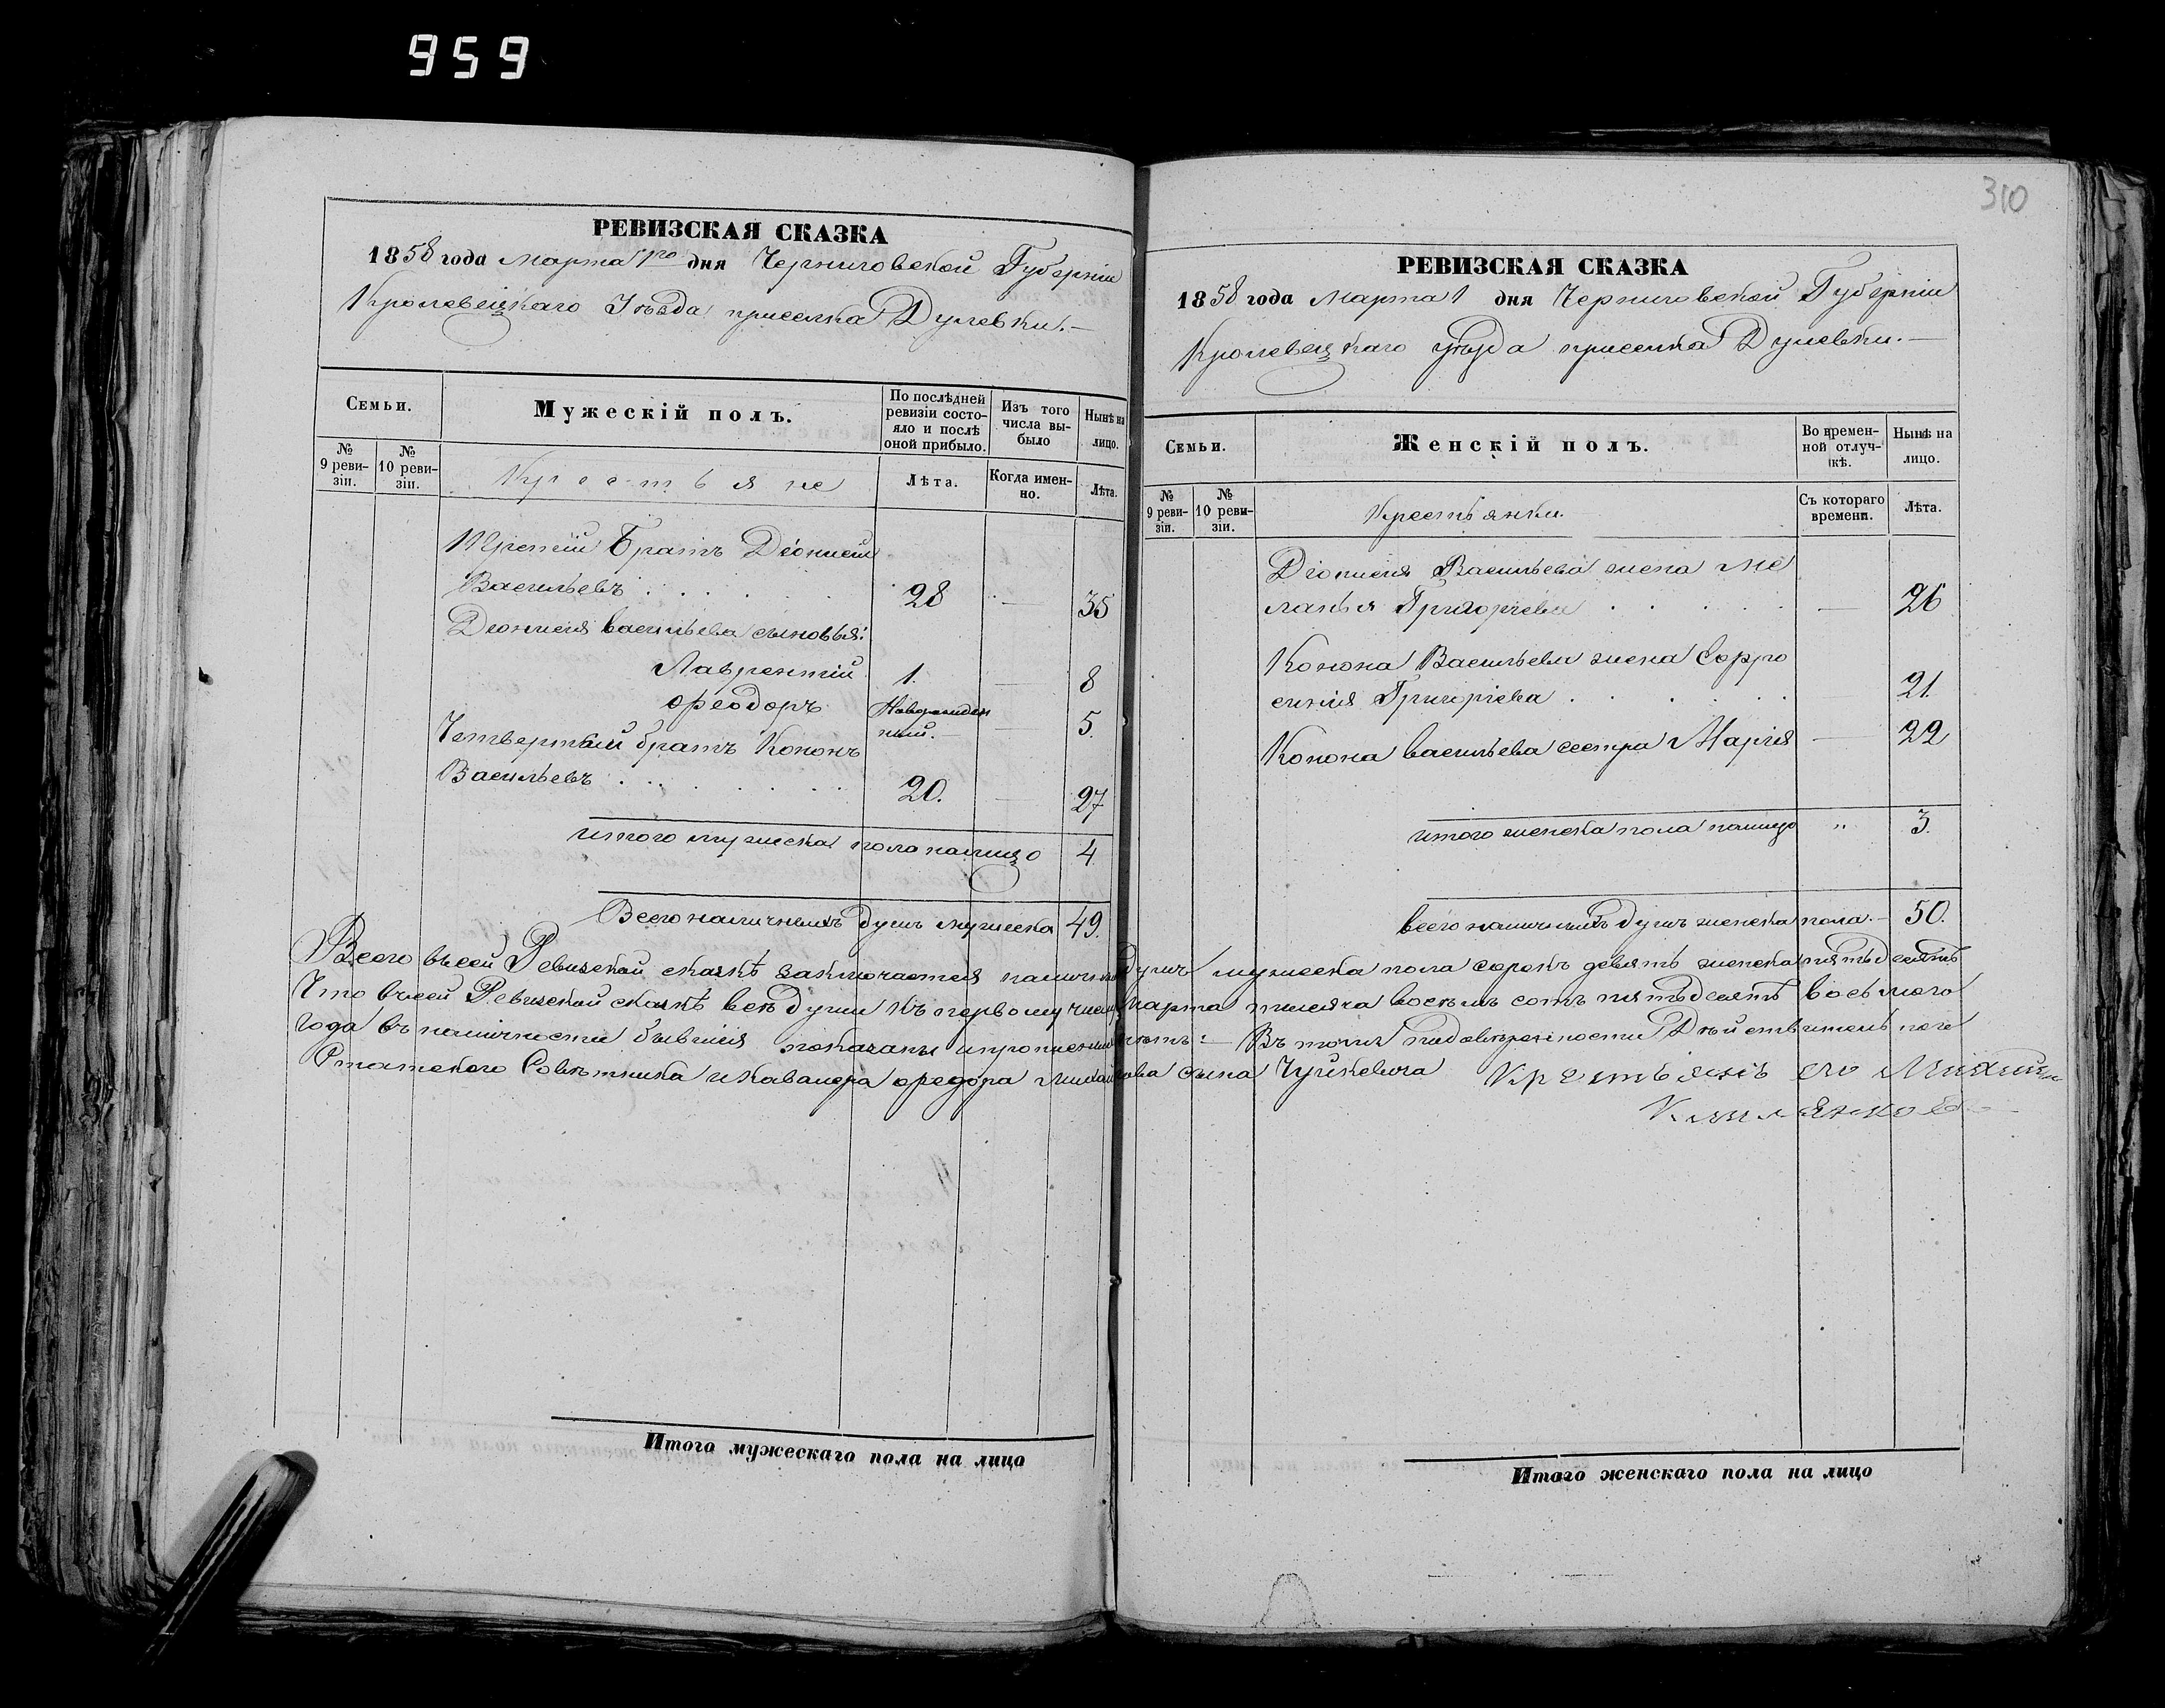 959
310
РЕВИЗСКАЯ СКАЗКА
1858 года Марта 1го дня Черниговской Губерніи
Кролевецкаго Уѣзда приселка Дулевки.
Семьи.
Мужескій полъ.
По послѣдней ревизіи состояло и послѣ оной прибыло.
Изъ того числа выбыло
Нынѣ на лицо.
№ 9 ревизіи.
№ 10 ревизіи.
Крестьяне
Лѣта.
Когда именно.
Лѣта.
Третій Братъ Діонисій
Васильевъ 28 — 35
Діонисія Васильева сыновья:
Лаврентій 1. — 8
Ѳеодоръ Новорожденный. — 5.
Четвертый братъ Кононъ
Васильевъ 20. — 27
итого мужеска пола налицо 4
Всего наличныхъ душъ мужеска 49.
РЕВИЗСКАЯ СКАЗКА
1858 года Марта 1 дня Черниговской Губерніи
Кролевецкаго уѣзда приселка Дулевки.
Семьи.
Женскій полъ.
Во временной отлучкѣ.
Нынѣ на лицо.
№ 9 ревизіи.
№ 10 ревизіи.
Крестьянки.
Съ котораго времени.
Лѣта.
Діонисія Васильева жена Ме
ланья Григорьева — 26
Конона Васильева жена Евфро
синія Григоріева 21.
Конона Васильева сестра Марія — 22
итого женска пола налицо " 3.
всего наличныхъ душъ женска пола. 50.
Всего въ сей Ревизской сказкѣ заключается наличныхъ душъ мужеска пола сорокъ девять женска пятьдесятъ
Что въ сей Ревизской сказкѣ всѣ души къ первому числу Марта мѣсяца восемь сотъ пятьдесятъ восьмого
года въ наличности бывшія показаны и прописныхъ нѣтъ:— Въ томъ по довѣренности Дѣйствительнаго
Статского Совѣтника и Кавалера Ѳедора Михайлова сына Чуйкевича Крестьянинъ его Михаилъ
Итого мужескаго пола на лицо
Итого женскаго пола на лицо